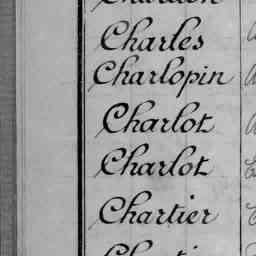 Charles
Charlopin
Charlot
Charlot
Chartier